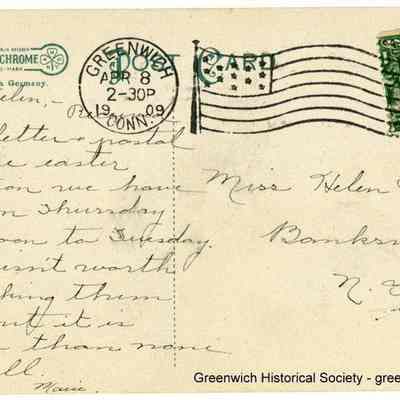 CHROME
POST CARD
GREENWICH
APR 8
2-30P
1909
CONN.
Germany.
elen,-
Re
letter & postal
e easter
on we have
m Thursday
oon to Tuesday.
isn't worth
king them
ut it is
than none
ll.
Marie.
Miss Helen
Banks
N.
Greenwich Historical Society - gree